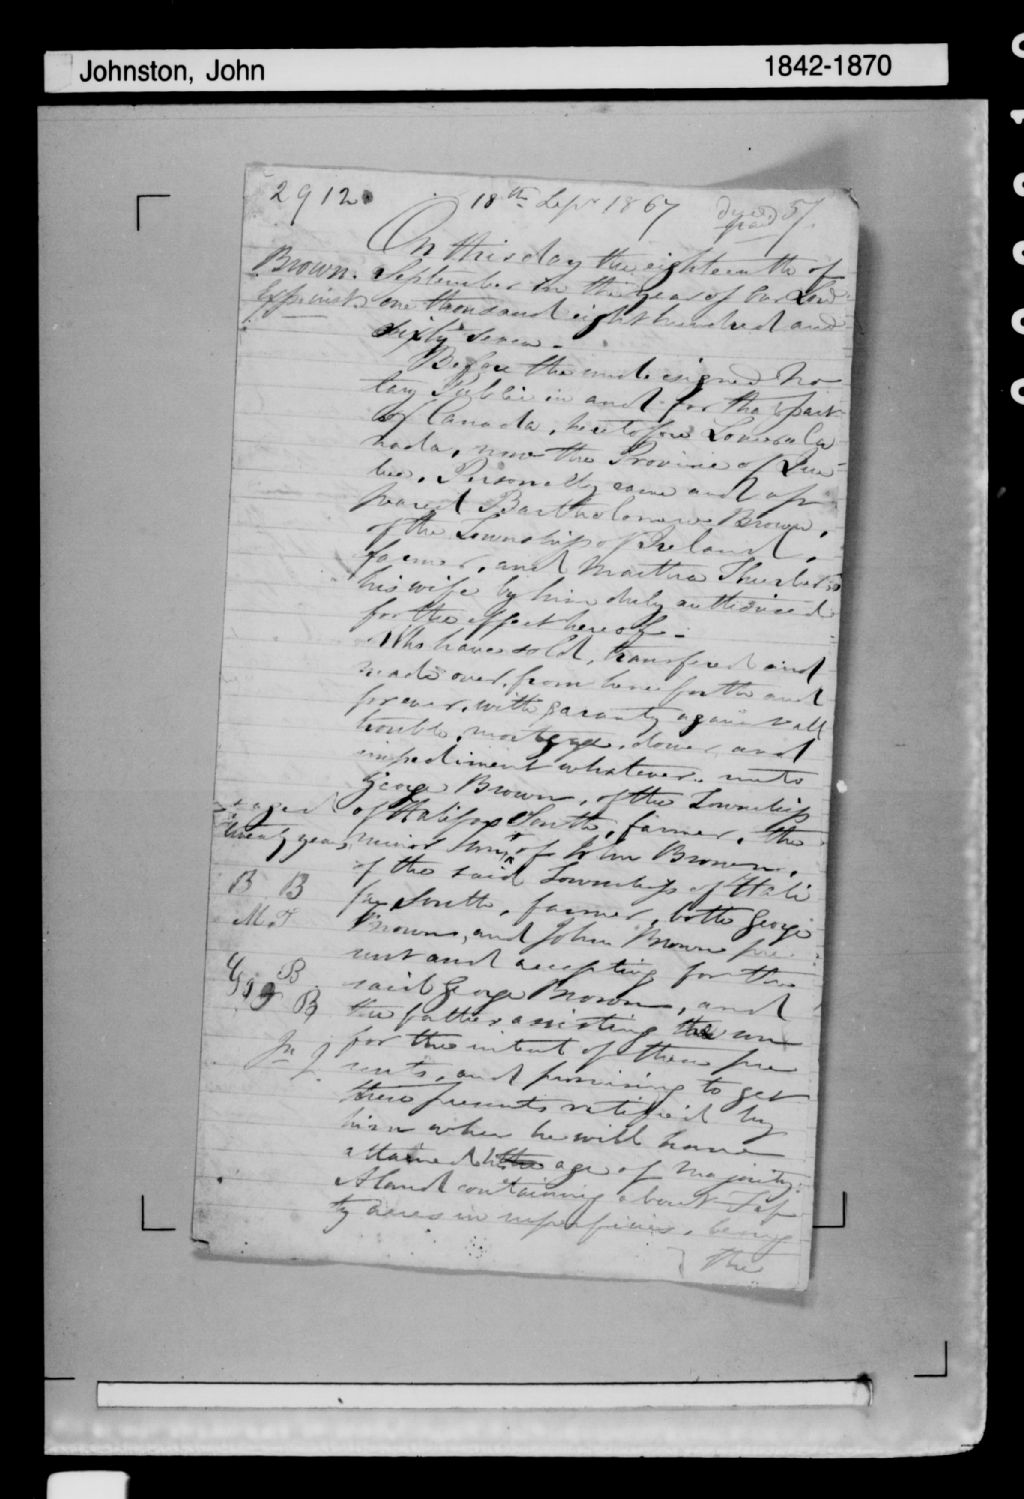 Johnston, John 1842-1870
2912 18th Sepr 1867
On this day the eighteenth of
Brown. September in the year of Our Lord
one thousand eight hundred and
sixty seven -
Before the undersigned No
tary Public in and for that part
of Canada, heretofore Lower Ca
nada, now the Province of Que
bec, Personally came and ap
peared Bartholomew Brown,
of the Township of Ireland,
farmer, and Martha
his wife by him duly authorized
for the effect hereof -
Who have sold, transfered and
made over, from henceforth and
forever, with garanty against all
trouble, mortgage, dower, and
impediment whatever, unto
George Brown, of the Township
aged of Halifax South, farmer, the
twenty years minor son + of John Brown,
of the said Township of Hali
B B
fax South, farmer, both George
M.T
Brown, and John Brown pre
sent and accepting for the
G B
said George Brown, and
B
the father assisting the son
for the intent of these pre
Jn J
sents, and promising to get
these presents ratified by
him when he will have
attained the age of majority:
A land containing about
ty acres in superficies, being
the